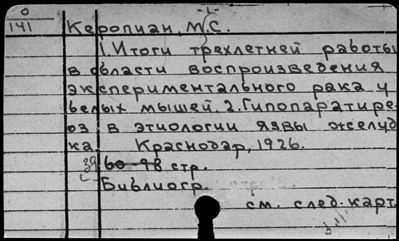 0
141
Керопиан, М.С.
1. Итоги трехлетней работы
в области воспроизведения
экспериментального рака у
белых мышей. 2. Гипопаратире-
оз в этиологии язвы желуд
ка. Краснодар, 1926.
39
60-98 стр.
Библиогр.
см. след. карт.